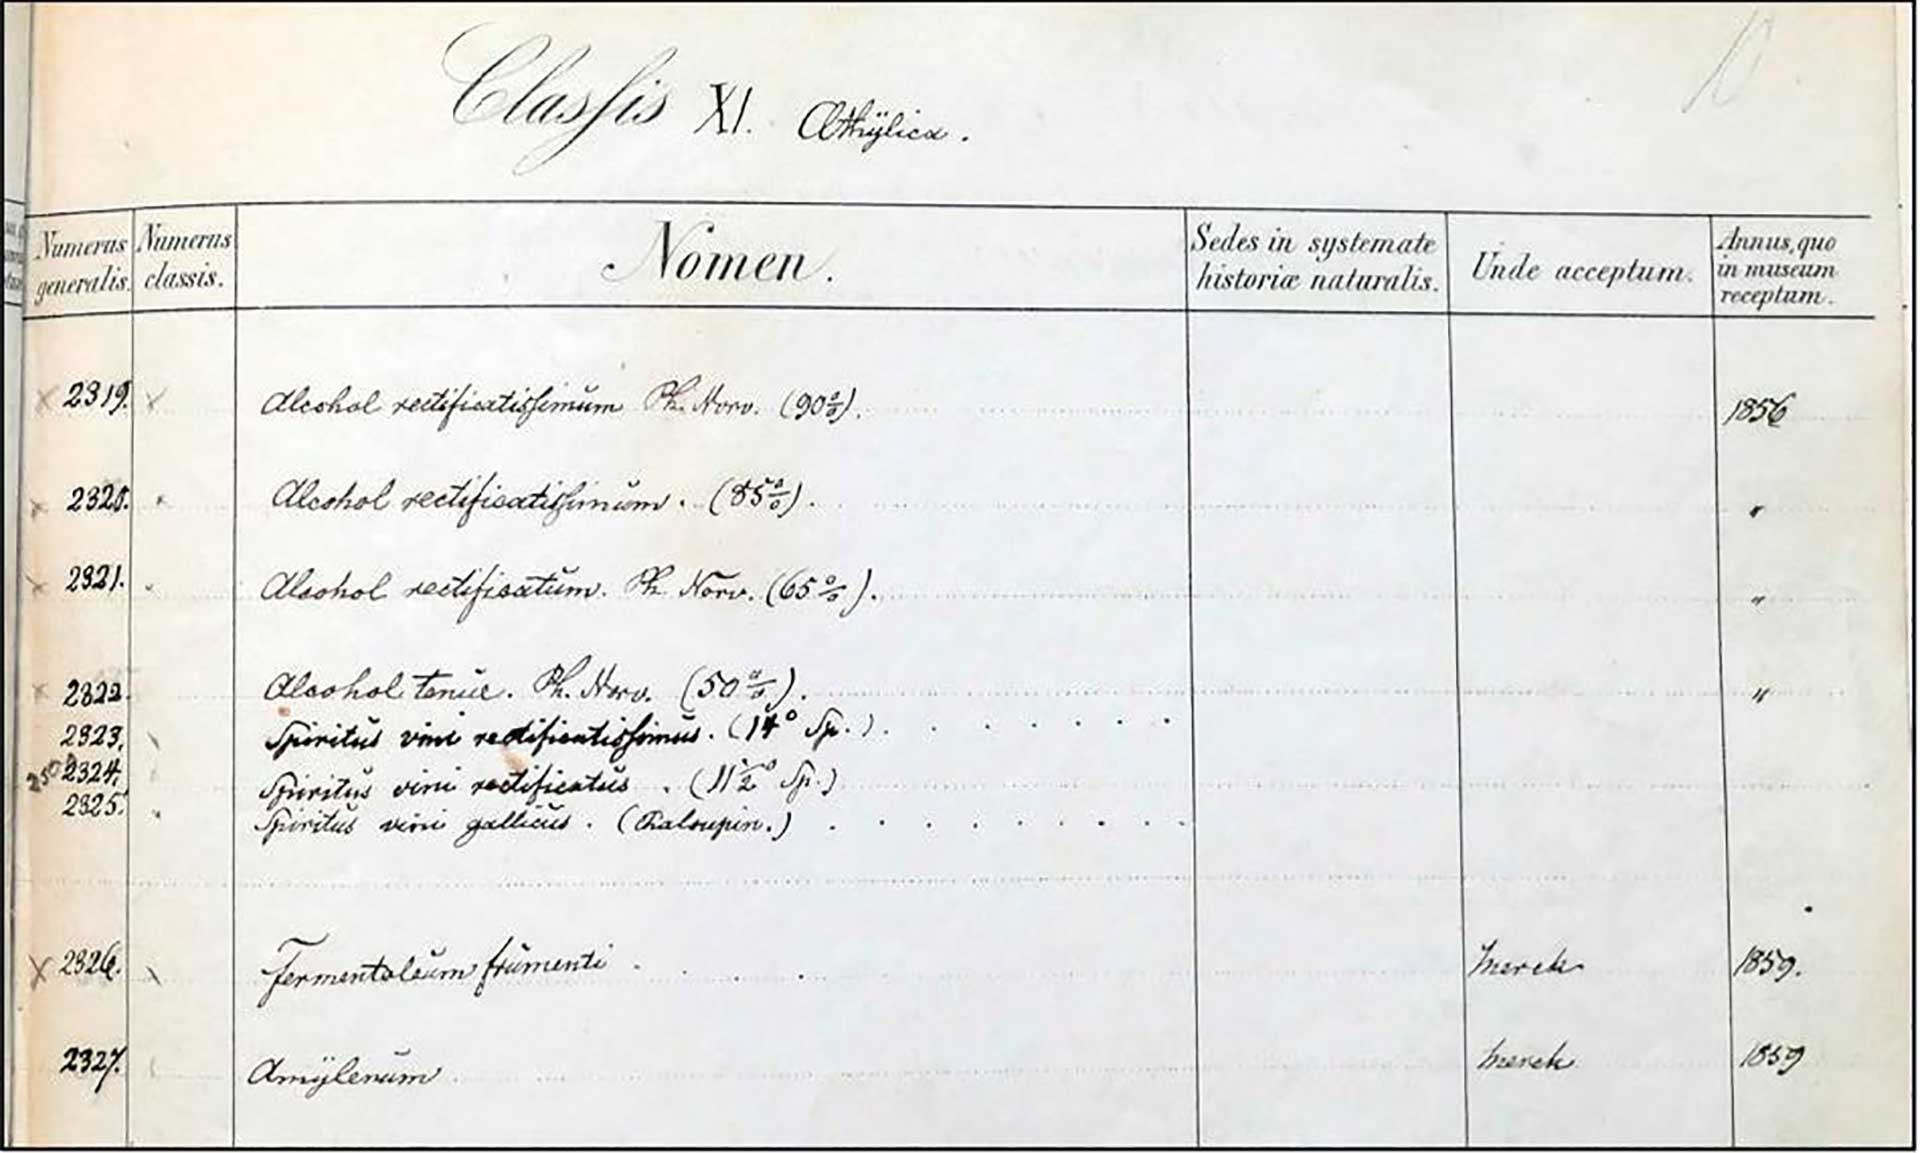 10
Classis XI. Æthÿlica.
Numerus generalis.
Numerus classis.
Nomen.
Sedes in systemate historiæ naturalis.
Unde acceptum.
Annus, quo in museum receptum.
× 2319. × Alcohol rectificatissimum Ph. Norv. (90%). 1856
× 2320. Alcohol rectificatissimum. (85%). "
× 2321. Alcohol rectificatum. Ph. Norv. (65%). "
× 2322. Alcohol tenue. Ph. Norv. (50%). "
2323. Spiritus vini rectificatissimus. (14° Sp.)
2324. Spiritus vini rectificatus. (11½° Sp.)
2325. Spiritus vini gallicus.
× 2326. Fermentoleum frumenti. Merck 1859.
2327. Amÿlenum Merck 1859